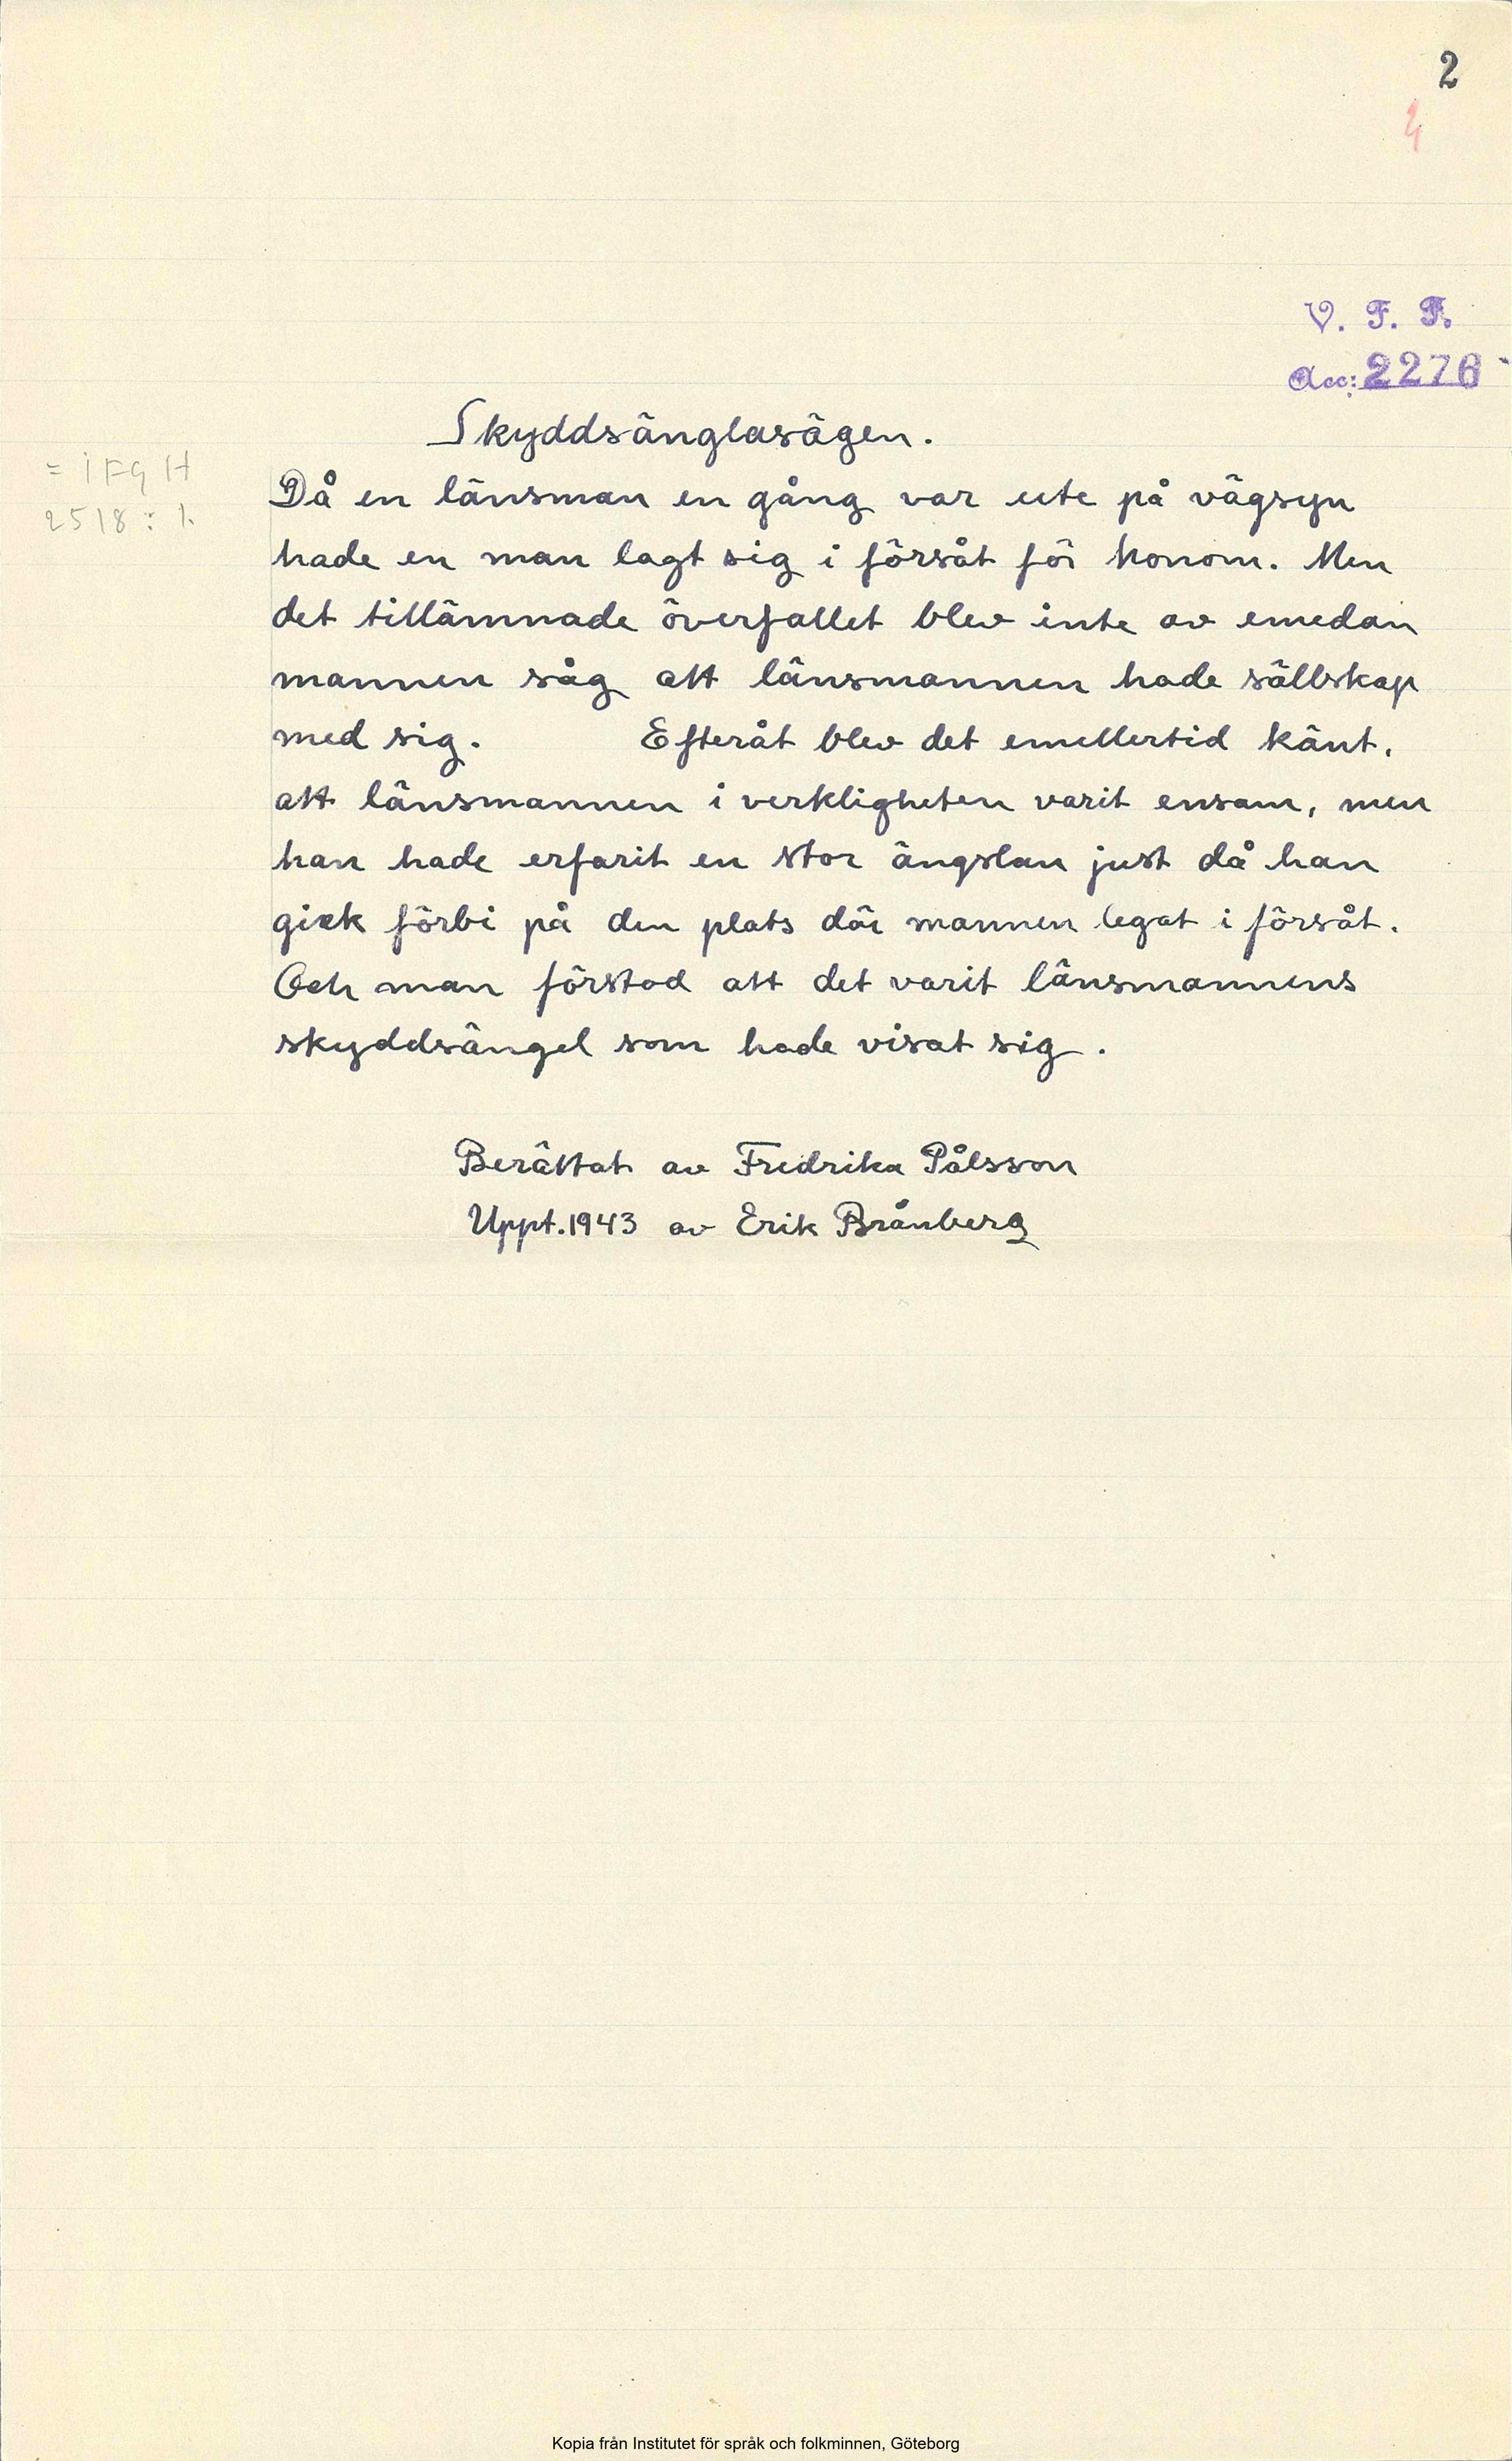 2
V. F. F.
Acc: 2276
Skyddsänglasägen.
= IFGH
2518 : 1.
Då en länsman en gång var ute på vägsyn
hade en man lagt sig i försåt för honom. Men
det tillämnade överfallet blev inte av emedan
mannen såg att länsmannen hade sällskap
med sig. Efteråt blev det emellertid känt,
att länsmannen i verkligheten varit ensam, men
han hade erfarit en stor ängslan just då han
gick förbi på den plats där mannen legat i försåt.
Och man förstod att det varit länsmannens
skyddsängel som hade visat sig.
Berättat av Fredrika Pålsson
Uppt. 1943 av Erik Brånberg
Kopia från Institutet för språk och folkminnen, Göteborg